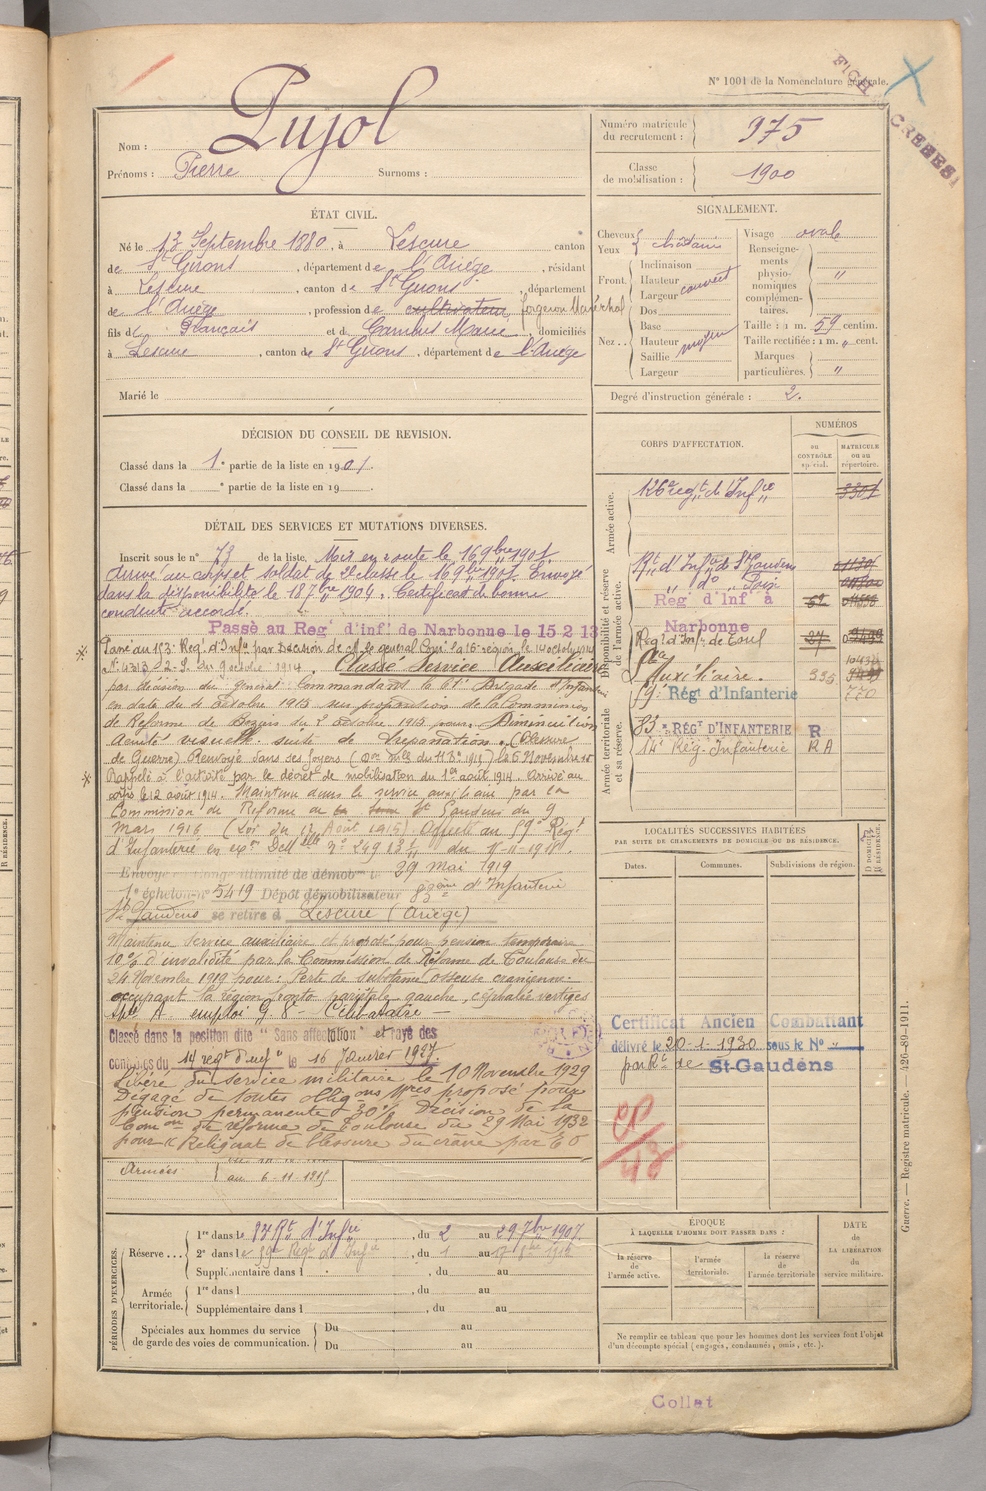 N° 1001 de la Nomenclature générale.
Nom : Pujol
Prénoms : Pierre Surnoms :
Numéro matricule du recrutement : 975
Classe de mobilisation : 1900
ÉTAT CIVIL.
Né le 13 Septembre 1880, à Lescure canton
de St Girons, département de l'Ariège, résidant
à Lescure, canton de St Girons, département
de l'Ariège, profession de cultivateur forgeron Maréchal
fils de Français et de Cambus Marie, domiciliés
à Lescure, canton de St Girons, département de l'Ariège
Marié le
SIGNALEMENT.
Cheveux
Yeux châtain
Front. Inclinaison
Hauteur
Largeur couvert
Nez .. Dos
Base
Hauteur moyen
Saillie
Largeur
Visage ovale
Renseignements physionomiques complémentaires. "
Taille : 1 m. 59 centim.
Taille rectifiée : 1 m. " cent.
Marques particulières. "
Degré d'instruction générale : 2.
DÉCISION DU CONSEIL DE REVISION.
Classé dans la 1e partie de la liste en 1901.
Classé dans la e partie de la liste en 19
DÉTAIL DES SERVICES ET MUTATIONS DIVERSES.
Inscrit sous le n° 73 de la liste. Mis en route le 16 9bre 1901.
Arrivé au corps et soldat de 2e classe le 16 9bre 1901. Envoyé
dans la disponibilité le 18 7bre 1904. Certificat de bonne
conduite accordé.
Passé au Reg' d'inf' de Narbonne le 15 2 13
Passé au 153e Reg' d'Infie par Décision de M. le général Comt la 16e région, le 14 octobre 1914
N° 4313 2-9 du 9 octobre 1914. Classé Service Auxiliaire
par décision du général Commandant la 61e Brigade d'Infanterie
en date du 4 octobre 1915 sur proposition de la Commission
de Réforme de Béziers du 2 octobre 1915 pour Diminution
Acuité visuelle suite de trépanation. (Blessure
de Guerre) Renvoyé dans ses foyers le 6 Novembre 15
Rappelé à l'activité par le décret de mobilisation du 1er août 1914. Arrivé au
corps le 12 août 1914. Maintenu dans le service auxiliaire par la
Commission de Réforme de St Gaudens du 9
Mars 1916 (Loi du 17 Août 1915) Affecté au 59e Régt
d'Infanterie en exon
Envoyé en congé illimité de démobon le 29 Mai 1919
1er échelon n° 5419 Dépôt démobilisateur 83ème d'Infanterie
St Gaudens se retire à Lescure (Ariège)
Maintenu service auxiliaire et proposé pour pension temporaire
10% d'invalidité par la Commission de Réforme de Toulouse du
24 Novembre 1919 pour : Perte de substance osseuse cranienne
occupant la région fronto pariétale gauche, céphalée vertiges
Célibataire
Classé dans la position dite "Sans affectation" et rayé des
contrôles du 14 regt d'inf le 16 Janvier 1927.
Libéré du service militaire le 10 Novembre 1929
Dégagé de toutes obligons mres proposé pour
pension permanente 30% Décision de la
Comon de réforme de Toulouse du 29 Mai 1932
pour "Reliquat de blessure du crâne par E O
Armées
au 6-11-1915
CORPS D'AFFECTATION.
NUMÉROS
au CONTRÔLE spécial.
MATRICULE ou au répertoire.
Armée active.
126e regt d'Infie 3301
Disponibilité et réserve de l'armée active.
Rt d'Infie de St Gaudens
do Foix
Reg' d'Inf' à Narbonne
Regt d'Inf. de Toul 27
Auxiliaire. 335
59e Rég' d'Infanterie 770
Armée territoriale et sa réserve.
83e RÉG' D'INFANTERIE R
14e Rég' Infanterie RA
LOCALITÉS SUCCESSIVES HABITÉES
PAR SUITE DE CHANGEMENTS DE DOMICILE OU DE RÉSIDENCE.
Dates. Communes. Subdivisions de région. D DOMICILE R RÉSIDENCE.
Certificat Ancien Combattant
délivré le 20-1-1930 sous le N° "
par Rt de St-Gaudens
PÉRIODES D'EXERCICES.
Réserve ... 1re dans le 83 Rt d'Infie, du 2 au 29 7bre 1907.
2e dans le 59e Régt d'Infie, du 1 au 17
Supplémentaire dans l , du au
Armée territoriale. 1re dans l , du au
Supplémentaire dans l , du au
Spéciales aux hommes du service de garde des voies de communication. Du au
Du au
ÉPOQUE
À LAQUELLE L'HOMME DOIT PASSER DANS :
la réserve de l'armée active.
l'armée territoriale.
la réserve de l'armée territoriale
DATE DE LA LIBÉRATION du service militaire.
Ne remplir ce tableau que pour les hommes dont les services font l'objet
d'un décompte spécial (engagés, condamnés, omis, etc.).
Guerre. — Registre matricule. — 426-89-1911.
Collat